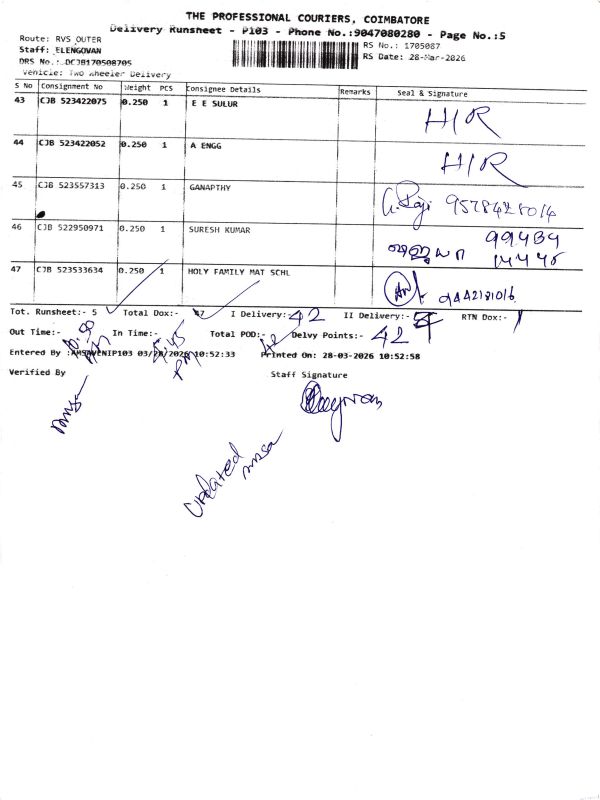 THE PROFESSIONAL COURIERS, COIMBATORE
Delivery Runsheet - P103 - Phone No.:9047080280 - Page No.:5
Route: RVS OUTER
RS No.: 1705087
Staff: ELENGOVAN
RS Date: 28-Mar-2026
DRS No.:.DCJB170508705
Vehicle: Two Wheeler Delivery
S No Consignment No Weight PCS Consignee Details Remarks Seal & Signature
43 CJB 523422075 0.250 1 E E SULUR H/R
44 CJB 523422052 0.250 1 A ENGG H/R
45 CJB 523557313 0.250 1 GANAPTHY G. Raji 9578428014
46 CJB 522950971 0.250 1 SURESH KUMAR 99434
14445
47 CJB 523533634 0.250 1 HOLY FAMILY MAT SCHL 9442181016
Tot. Runsheet:- 5 Total Dox:- 47 I Delivery:- 42 II Delivery:- RTN Dox:-
Out Time:- In Time:- 5.45 PM Total POD:- 42 Delvy Points:- 42
Entered By :AMSAVENIP103 03/28/2026 10:52:33 Printed On: 28-03-2026 10:52:58
Verified By Staff Signature
Amsa
Updated
Amsa